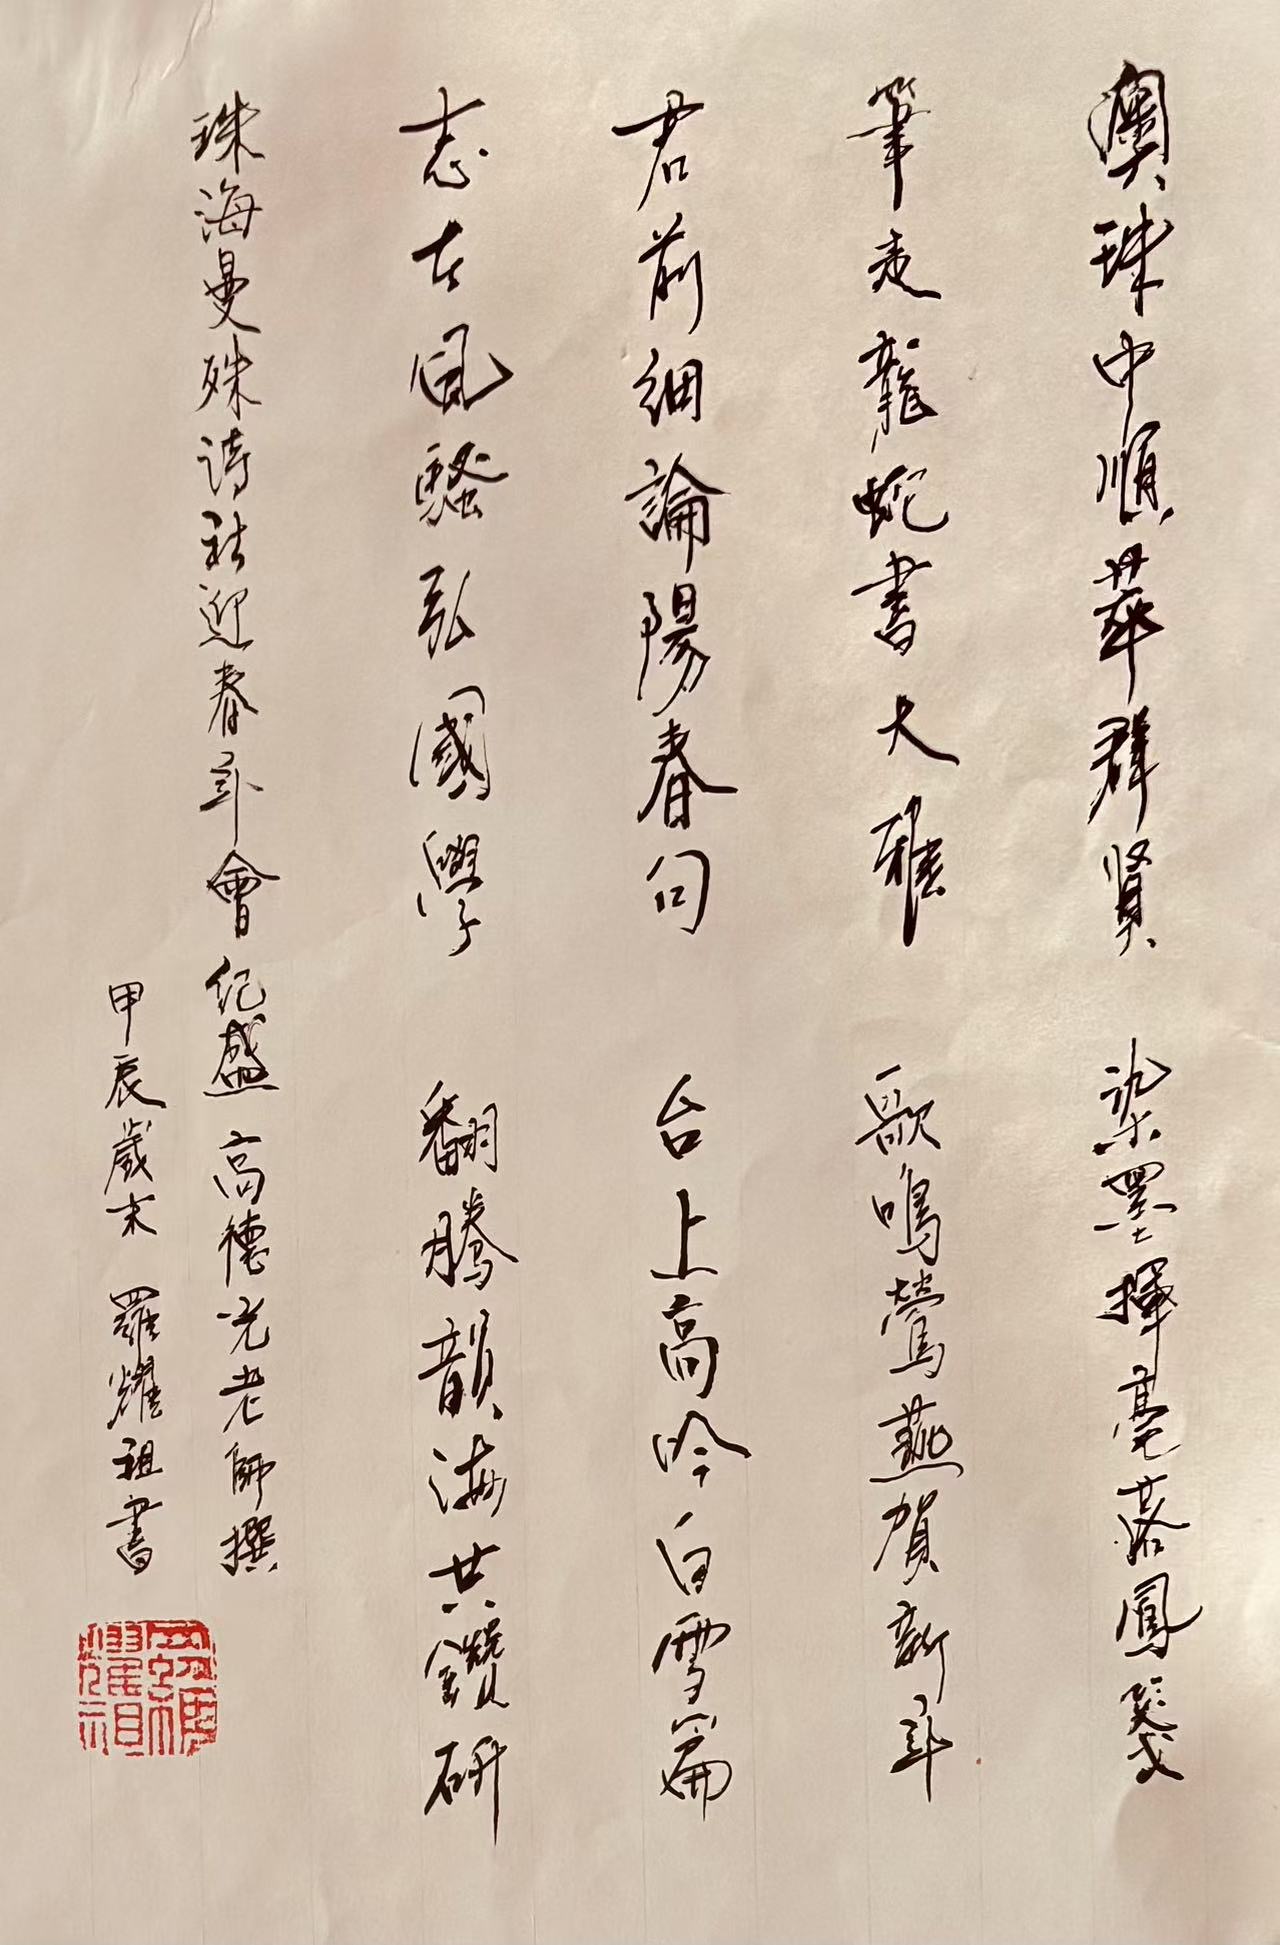 澳珠中順華群賢 染墨揮毫落鳳箋
筆走龍蛇書大雅 歌鳴鶯燕賀新年
君前細論陽春句 台上高吟白雪篇
志在風騷弘國學 翻騰韻海共鑽研
珠海曼殊詩社迎春年會紀盛 高德光老師撰
甲辰歲末 羅耀祖書
羅耀祖